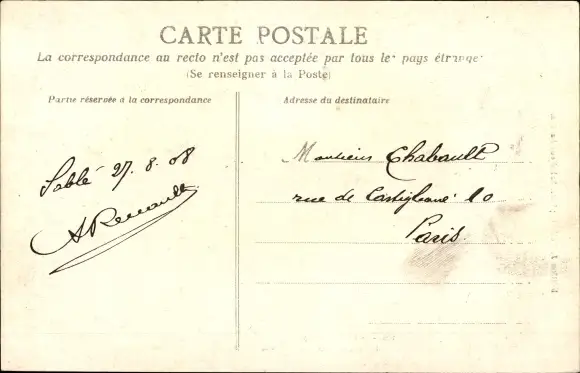 CARTE POSTALE
La correspondance au recto n'est pas acceptée par tous les pays étrangers
(Se renseigner à la Poste)
Partie réservée à la correspondance
Adresse du destinataire
Sablé 27. 8. 08
ARenault
Monsieur Chabault
rue de Castiglione 10
Paris.